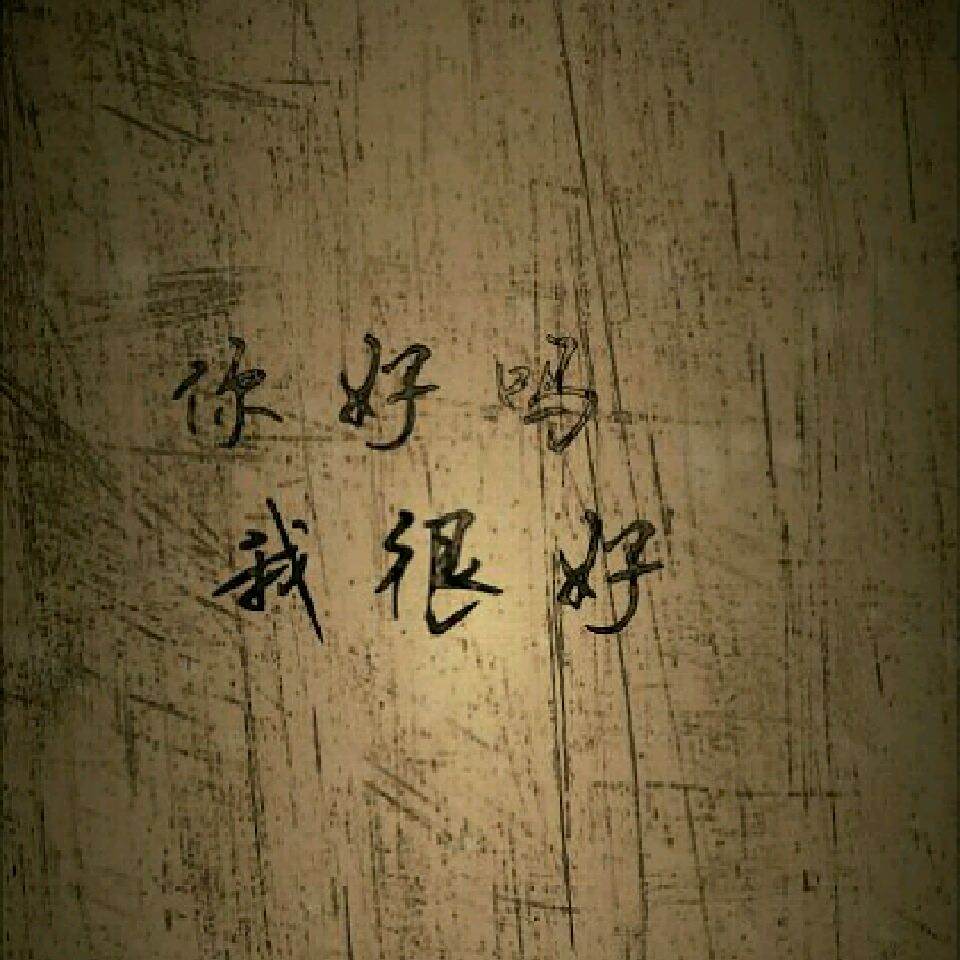 你好吗
我很好